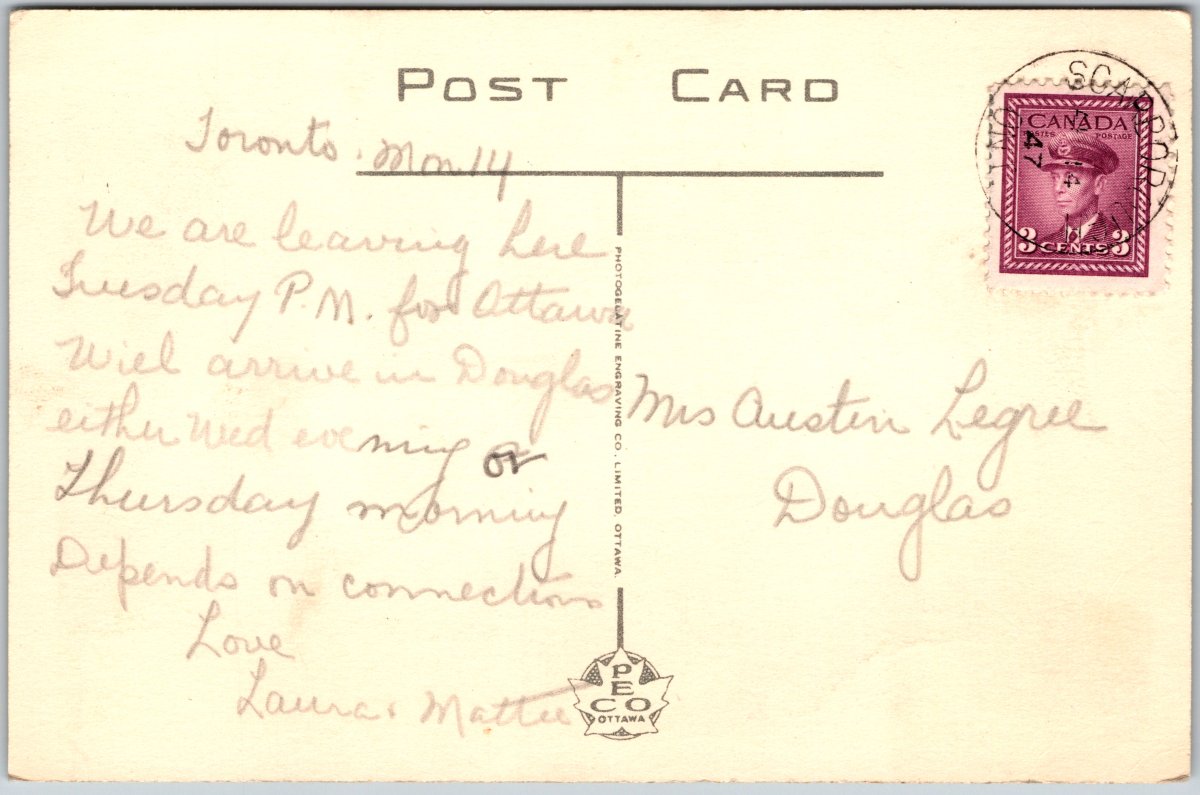 POST CARD
Toronto. Mon. 14
We are leaving here
Tuesday P.M. for Ottawa
Will arrive in Douglas
either Wed evening or
Thursday morning
Depends on connections
Love
Laura & Mattie
Mrs Austin Legree
Douglas
PHOTOGELATINE ENGRAVING CO. LIMITED, OTTAWA.
PECO
OTTAWA
CANADA
POSTES POSTAGE
3 CENTS 3
14
47
ONT